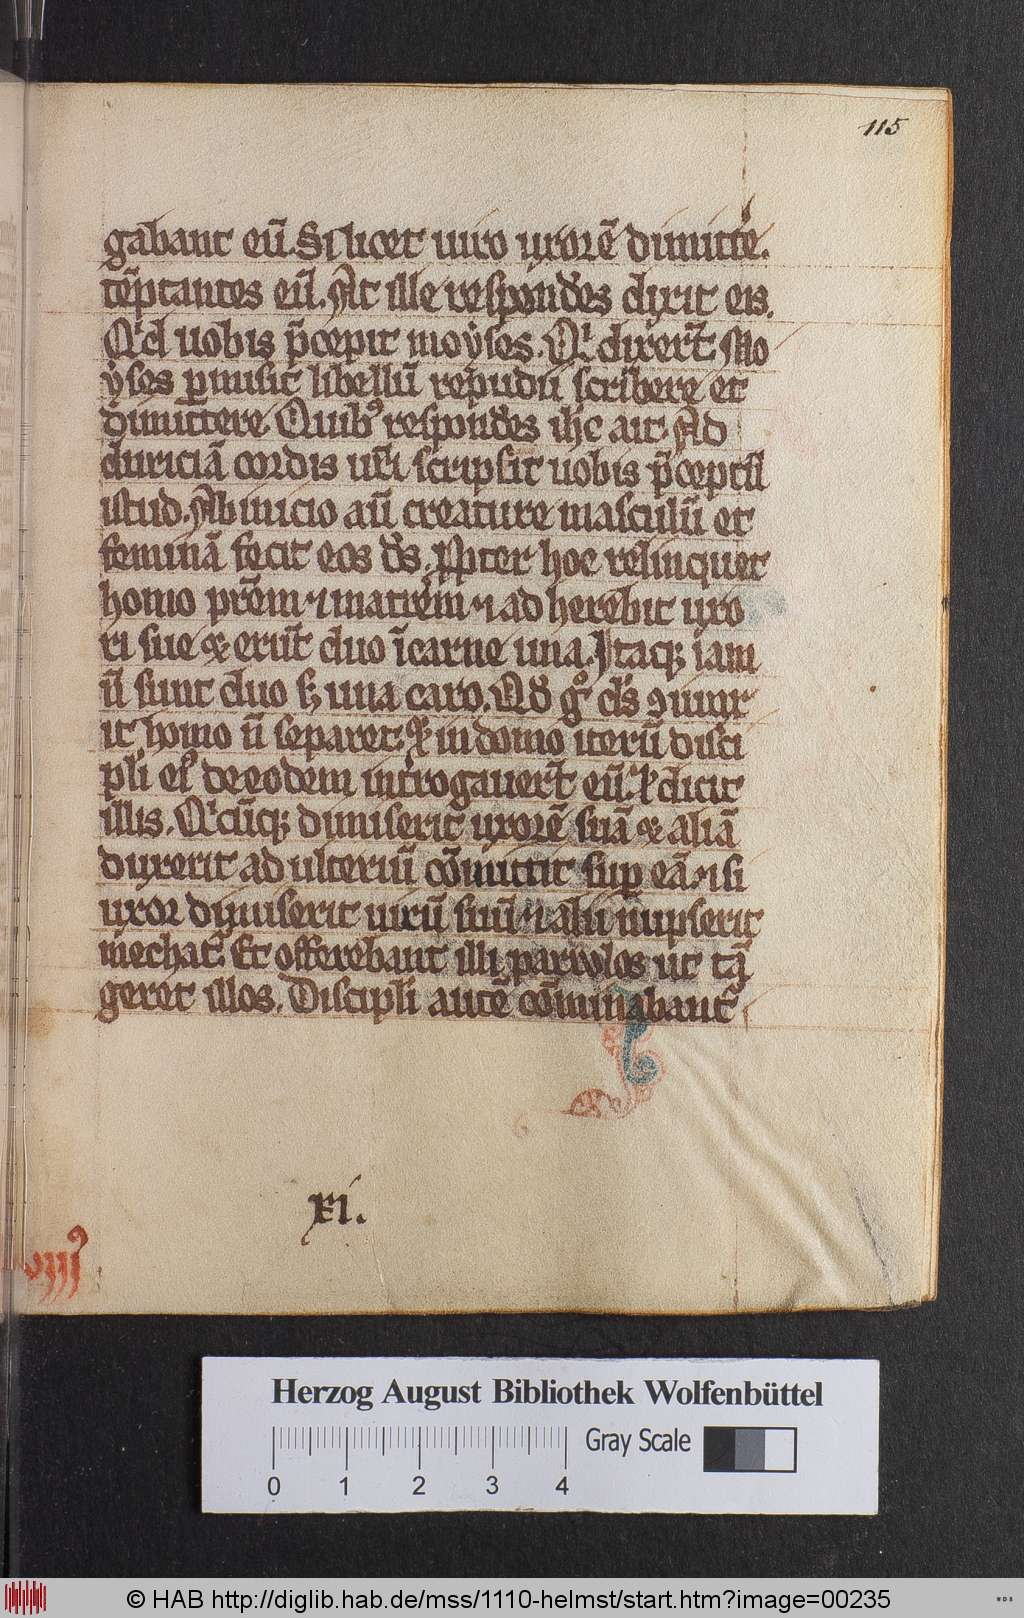 115
gabant eū. Si licet uiro uxorē dimitt᷑e.
tēptantes eū. At ille respond̄es dixit eis.
Qͥd uobis p̄cepit moẏses. Qͥ dixer̄t. Mo
ẏses ꝑmisit libellū repudii scribere et
dimittere. Quibꝰ respond̄es ih̄c ait. Ad
duriciā cordis ur̄i scripsit uobis p̄ceptū
istud. Ab inicio aū creature masculū et
feminā fecit eos d̄s. Ꝓpter hoc relinquet
homo pr̄em ⁊ matrem ⁊ ad herebit uxo
ri sue ⁊ erūt duo ī carne una. Itaqꝫ iam
n̄ sunt duo sꝫ una caro. Qd̄ gͦ d̄s ꝯiunx
it homo n̄ separet. Et in domo iterū disci
pl̄i eiꝰ de eodem int̄rogauer̄t eū. Et dicit
illis. Qͥcūqꝫ dimiserit uxorē suā ⁊ aliā
duxerit adulteriū cōmittit suꝑ eā. ⁊ si
uxor dimiserit uirū suū ⁊ alii nupserit
mechat᷑. Et offerebant illi paruolos ut tā
geret illos. Discipl̄i autē cōminabant᷑
xi.
Herzog August Bibliothek Wolfenbüttel
Gray Scale
0 1 2 3 4
© HAB http://diglib.hab.de/mss/1110-helmst/start.htm?image=00235